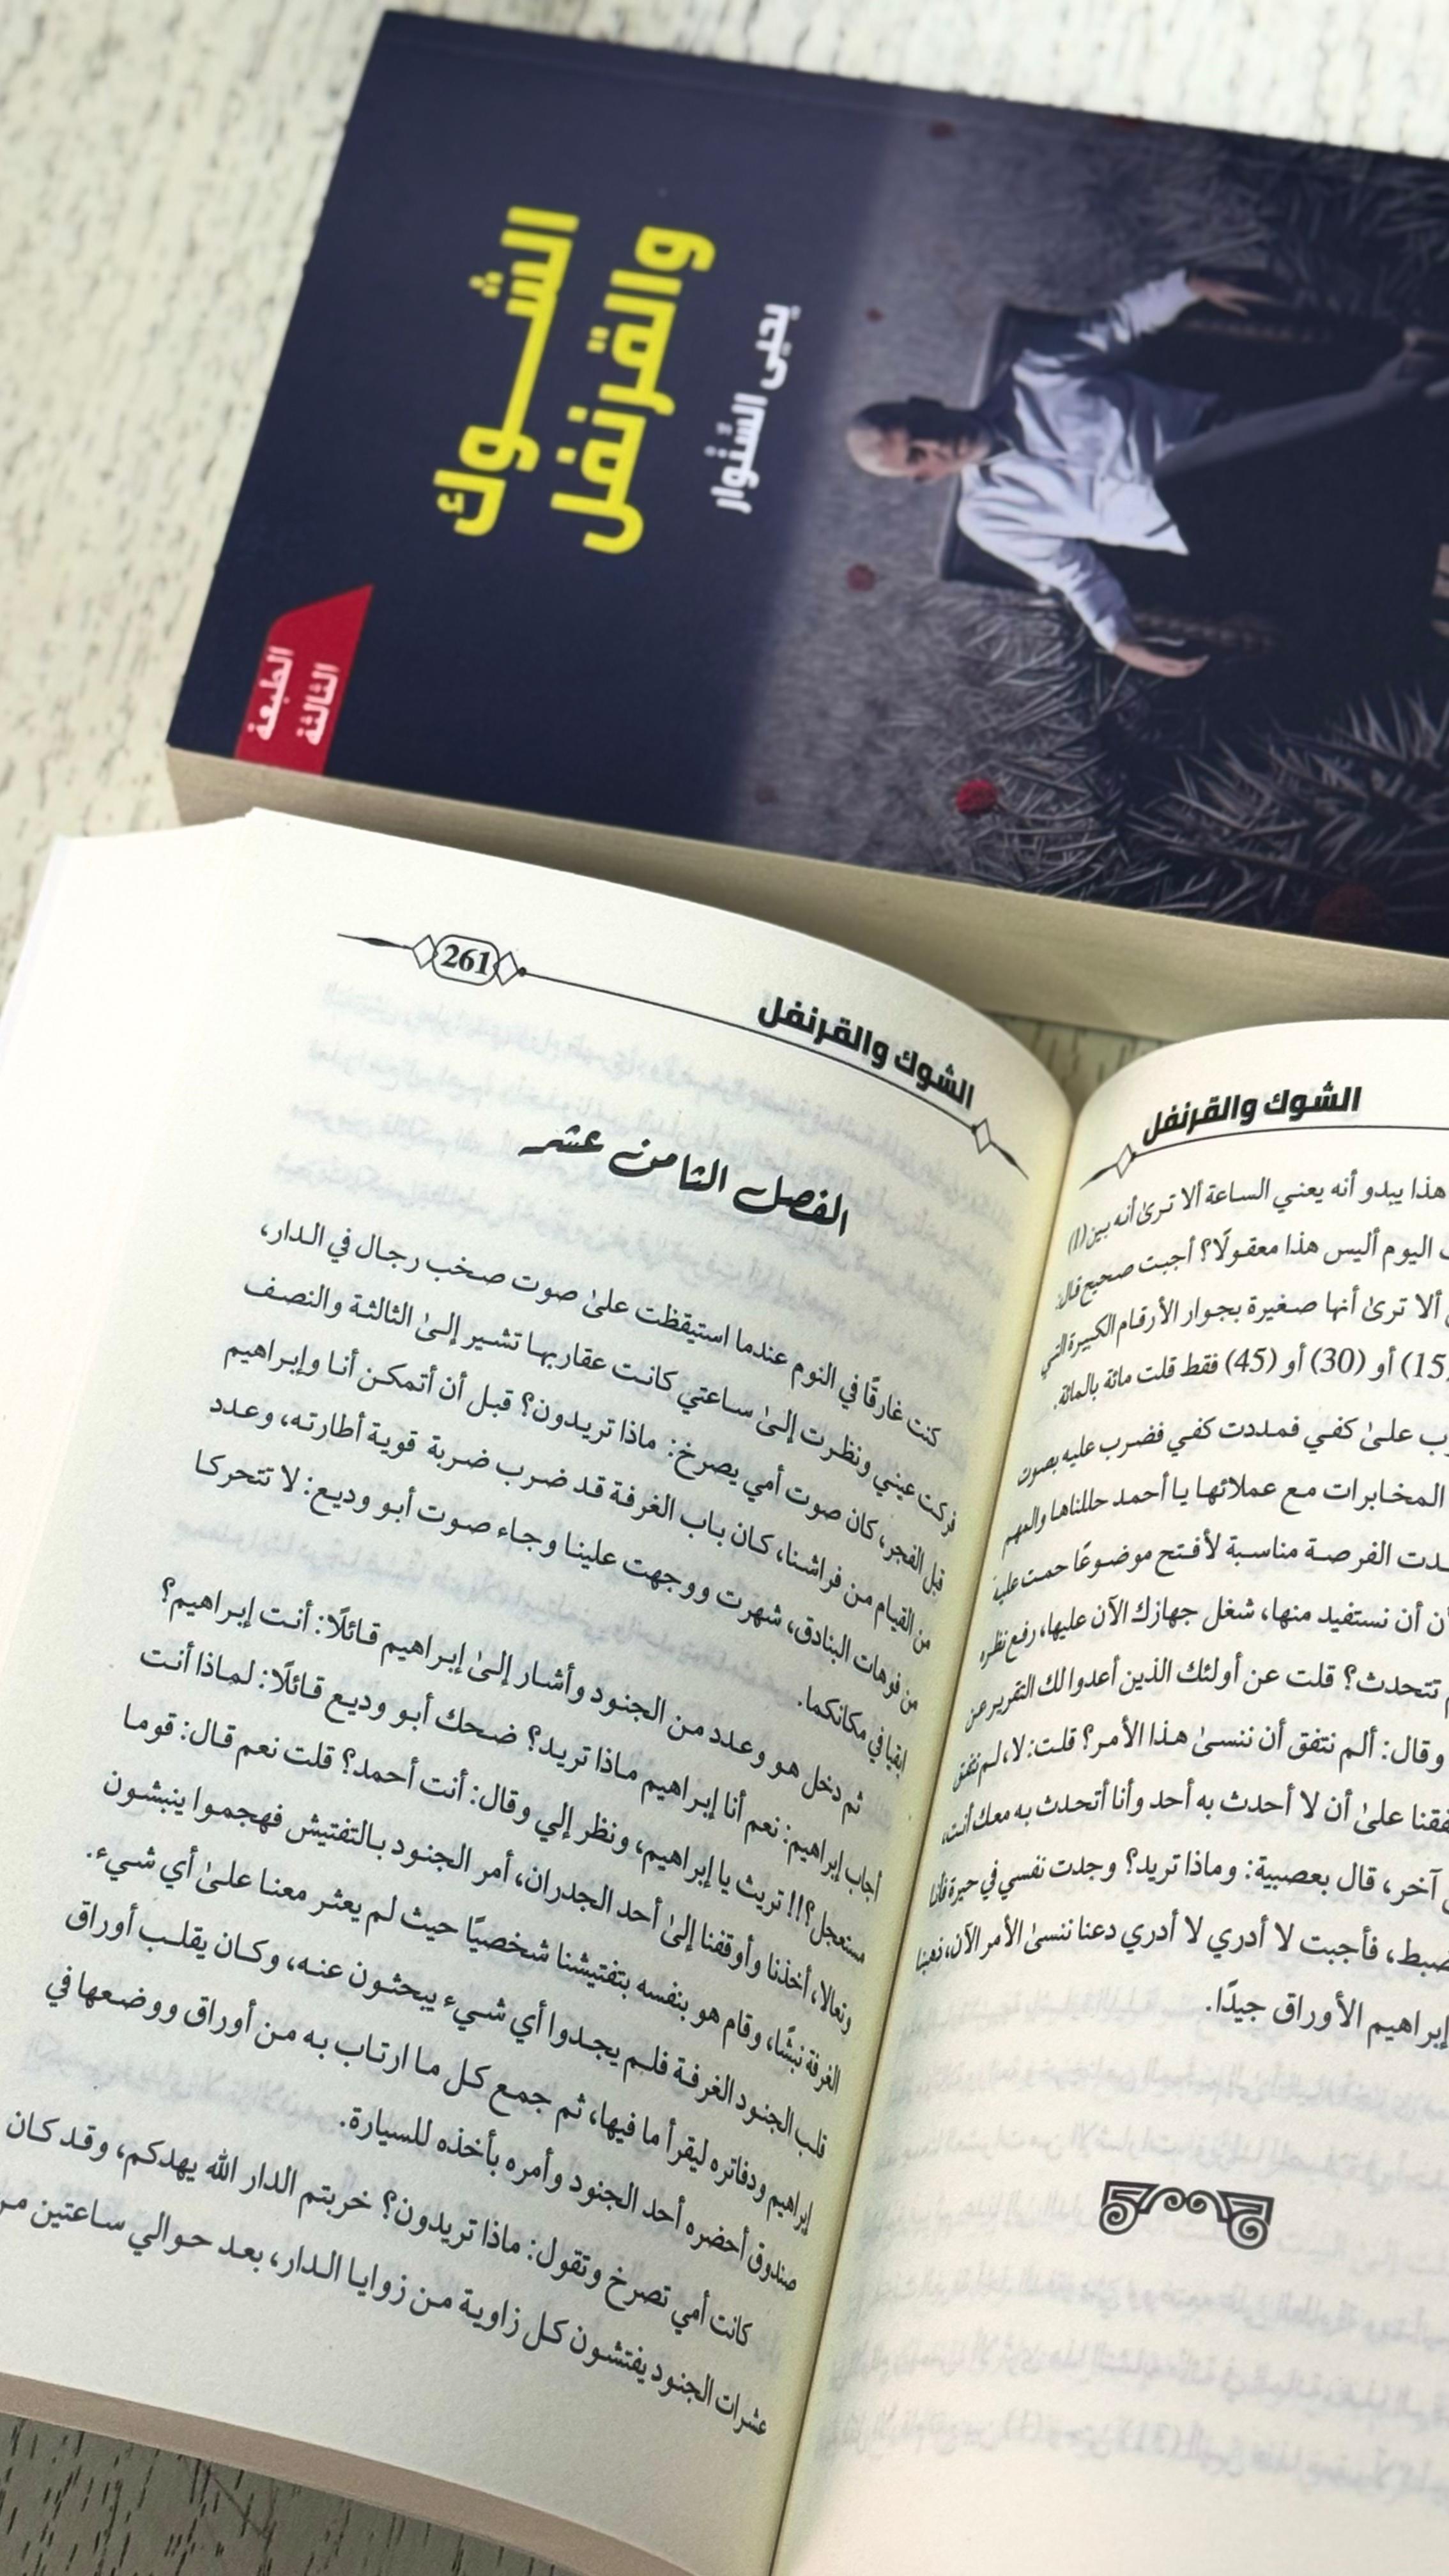 الشوك
والقرنفل
يحيى السنوار
الطبعة
الثالثة
الشوك والقرنفل
هذا يبدو أنه يعني الساعة ألا ترىٰ أنه بين (1)
اليوم أليس هذا معقولًا؟ أجبت صحيح قال:
ألا ترىٰ أنها صغيرة بجوار الأرقام الكبيرة التي
(15) أو (30) أو (45) فقط قلت مائة بالمائة.
علىٰ كفي فمددت كفي فضرب عليه بصوت
المخابرات مع عملائها يا أحمد حللناها والمهم
الفرصة مناسبة لأفتح موضوعًا حمت عليه
أن نستفيد منها، شغل جهازك الآن عليها، رفع نظره
تتحدث؟ قلت عن أولئك الذين أعدوا لك التقرير عن
وقال: ألم نتفق أن ننسىٰ هذا الأمر؟ قلت: لا، لم نتفق
علىٰ أن لا أحدث به أحد وأنا أتحدث به معك أنت،
آخر، قال بعصبية: وماذا تريد؟ وجدت نفسي في حيرة فأنا
فأجبت لا أدري لا أدري دعنا ننسىٰ الأمر الآن، ذهبنا
إبراهيم الأوراق جيدًا.
261
الشوك والقرنفل
الفصل الثامن عشر
كنت غارقًا في النوم عندما استيقظت علىٰ صوت صخب رجال في الدار،
فركت عيني ونظرت إلىٰ ساعتي كانت عقاربها تشير إلىٰ الثالثة والنصف
قبل الفجر، كان صوت أمي يصرخ: ماذا تريدون؟ قبل أن أتمكن أنا وإبراهيم
من القيام من فراشنا، كان باب الغرفة قد ضرب ضربة قوية أطارته، وعدد
من فوهات البنادق، شهرت ووجهت علينا وجاء صوت أبو وديع: لا تتحركا
ابقيا في مكانكما.
ثم دخل هو وعدد من الجنود وأشار إلىٰ إبراهيم قائلًا: أنت إبراهيم؟
أجاب إبراهيم: نعم أنا إبراهيم ماذا تريد؟ ضحك أبو وديع قائلًا: لماذا أنت
مستعجل؟!! تريث يا إبراهيم، ونظر إلي وقال: أنت أحمد؟ قلت نعم قال: قوما
وتعالا، أخذنا وأوقفنا إلىٰ أحد الجدران، أمر الجنود بالتفتيش فهجموا ينبشون
الغرفة نبشًا، وقام هو بنفسه بتفتيشنا شخصيًا حيث لم يعثر معنا علىٰ أي شيء.
قلب الجنود الغرفة فلم يجدوا أي شيء يبحثون عنه، وكان يقلب أوراق
إبراهيم ودفاتره ليقرأ ما فيها، ثم جمع كل ما ارتاب به من أوراق ووضعها في
صندوق أحضره أحد الجنود وأمره بأخذه للسيارة.
كانت أمي تصرخ وتقول: ماذا تريدون؟ خربتم الدار الله يهدكم، وقد كان
عشرات الجنود يفتشون كل زاوية من زوايا الدار، بعد حوالي ساعتين من